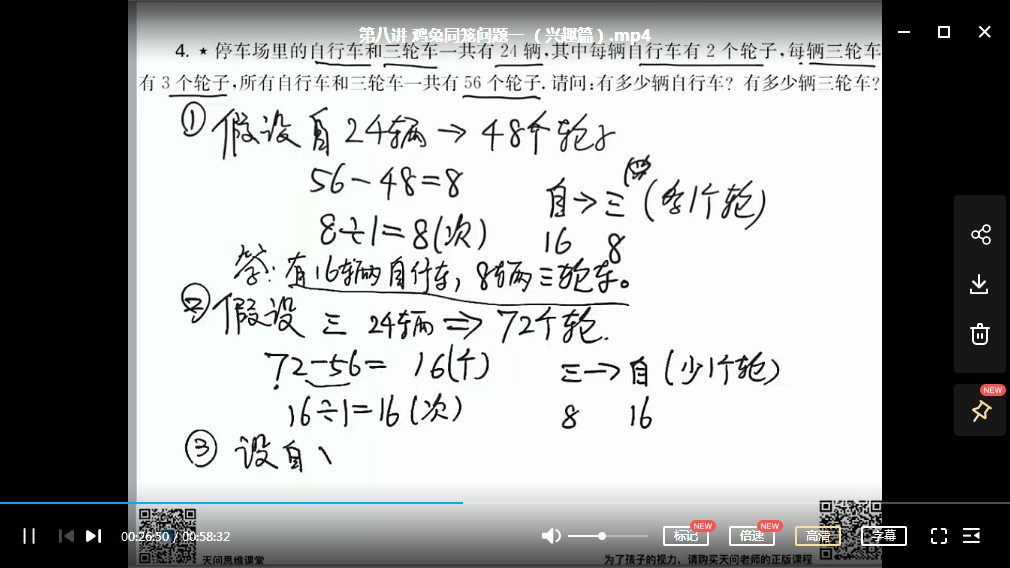 第八讲 鸡兔同笼问题一 （兴趣篇）.mp4
4. ★ 停车场里的自行车和三轮车一共有 24 辆,其中每辆自行车有 2 个轮子,每辆三轮车
有 3 个轮子,所有自行车和三轮车一共有 56 个轮子. 请问:有多少辆自行车? 有多少辆三轮车?
① 假设自 24辆 → 48个轮子
56-48=8
自→三 (多1个轮)
8÷1=8(次)
16 8
答: 有16辆自行车, 8辆三轮车。
② 假设 三 24辆 ⇒ 72个轮.
72-56= 16(个)
三→自 (少1个轮)
16÷1=16(次)
8 16
③ 设自
NEW
00:26:50 / 00:58:32
标记 NEW
倍速 NEW
高清
字幕
天问思维课堂
为了孩子的视力，请购买天问老师的正版课程